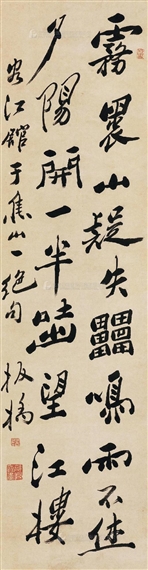 霧裹山疑失靁鳴雨不住
夕陽開一半吐望江樓
客江館于焦山一絕句 板橋